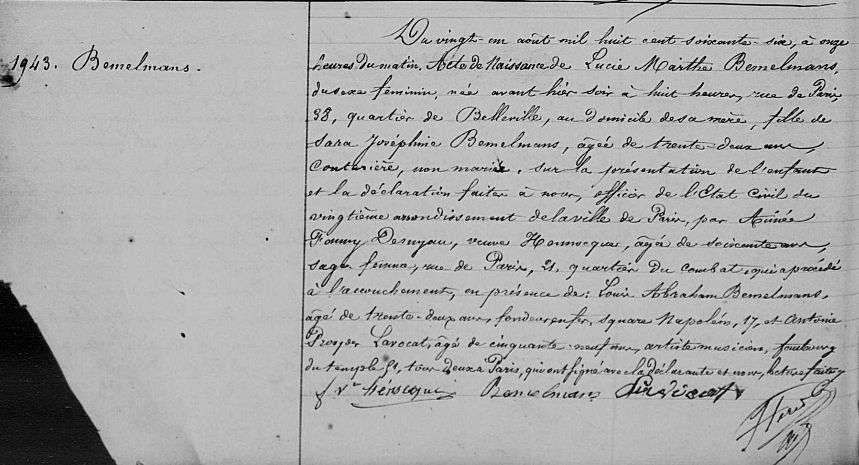 1943. Bemelmans.
Du vingt-un août mil huit cent soixante-six, à onze
heures du matin, Acte de Naissance de Lucie Marthe Bemelmans,
du sexe féminin, née avant hier soir à huit heures, rue de Paris,
38, quartier de Belleville, au domicile de sa mère, fille de
Sara Joséphine Bemelmans, âgée de trente-deux ans,
couturière, non mariée. Sur la présentation de l'enfant
et la déclaration faites à nous, officier de l'Etat civil du
vingtième arrondissement de la ville de Paris, par Aimée
Fanny veuve Hennocque, âgée de soixante ans,
sage femme, rue de Paris, 21, quartier du Combat, qui a procédé
à l'accouchement, en présence de: Louis Abraham Bemelmans,
âgé de trente-deux ans, fondeur en fer, square Napoléon, 17, et Antoine
Prosper Lavocat, âgé de cinquante-neuf ans, artiste musicien, faubourg
du temple tous deux à Paris, qui ont signé avec la déclarante et nous, lecture faite
f. Ve Hénocque Bemelmans Lavocat